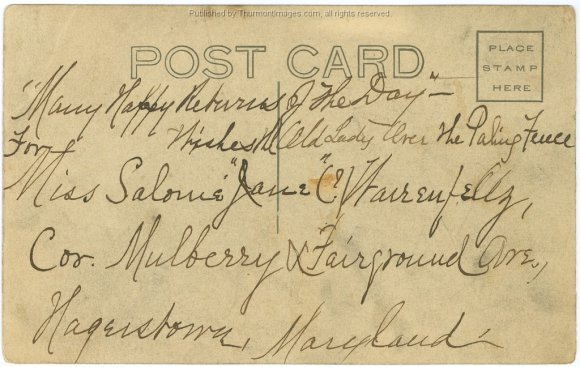 Published by ThurmontImages.com, all rights reserved.
POST CARD
PLACE
STAMP
HERE
"Many Happy Returns of The Day"—
For Wishes Old Lady Over The Paling Fence
Miss Salome "Jane" (?) Warrenfeltz,
Cor. Mulberry & Fairground Ave.,
Hagerstown, Maryland.